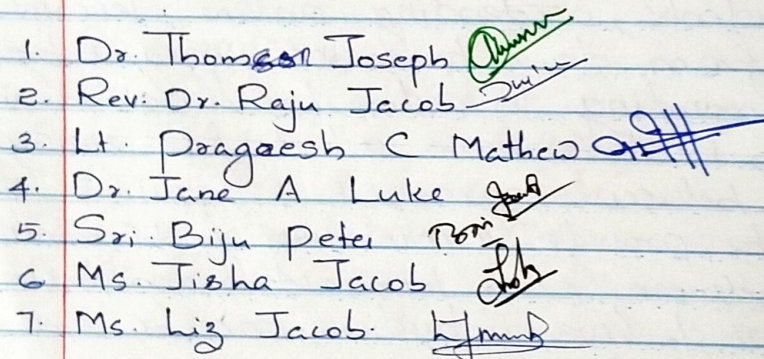 1. Dr. Thomson Joseph
2. Rev. Dr. Raju Jacob
3. Lt. Prageesh C Mathew
4. Dr. Jane A Luke
5. Sri. Biju Peter
6 Ms. Jisha Jacob
7. Ms. Liz Jacob.